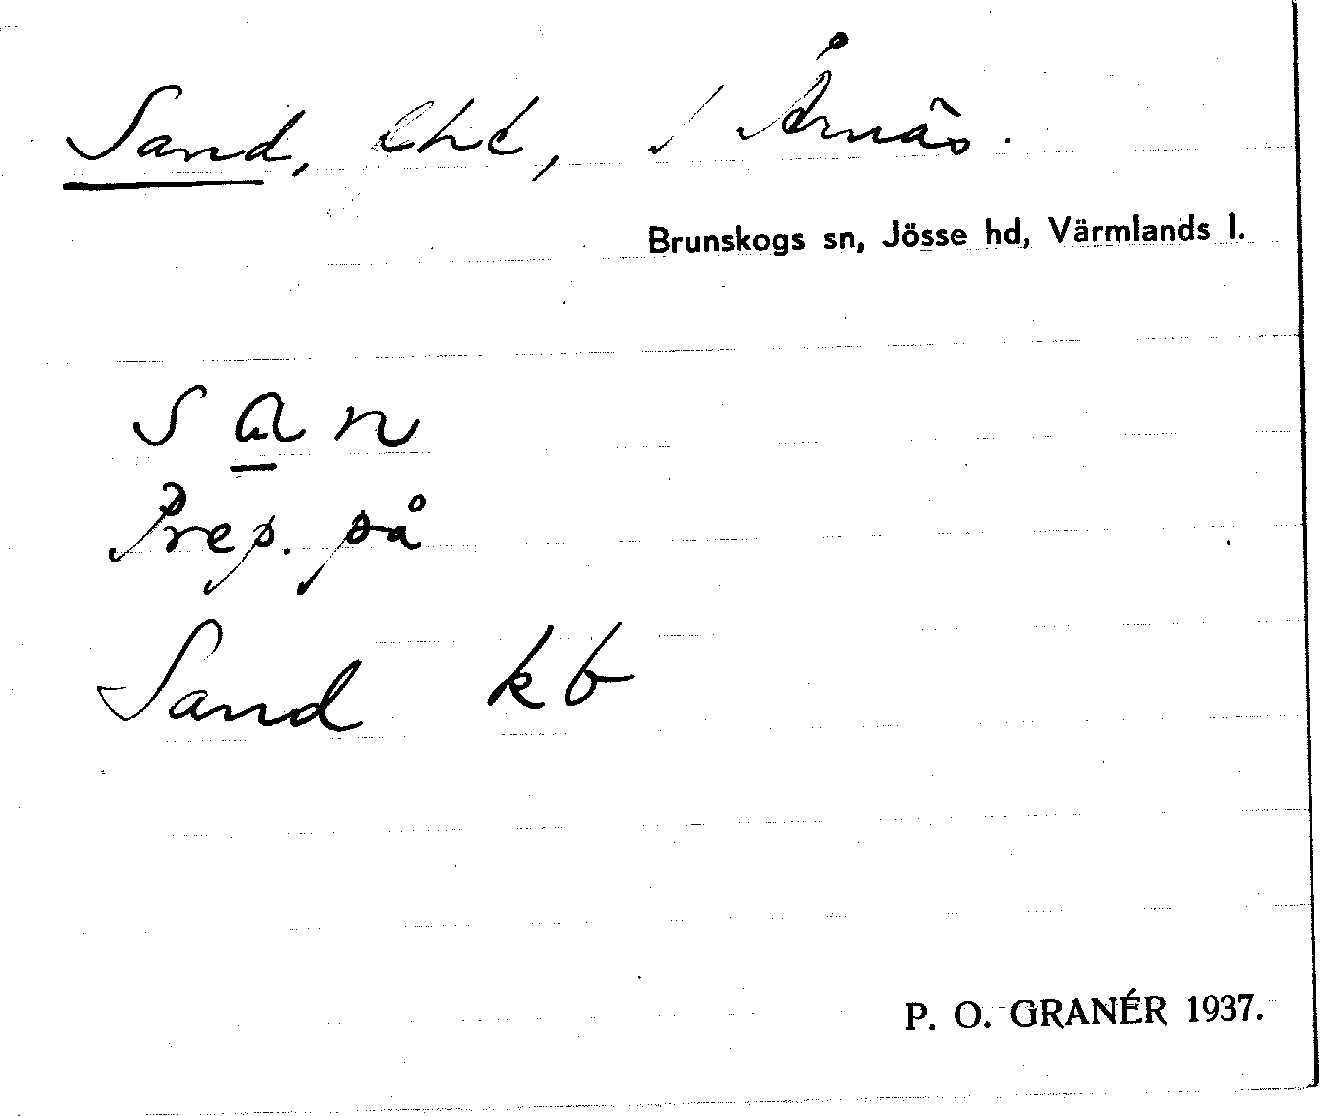 Sand, lht, i Årnäs.
Brunskogs sn, Jösse hd, Värmlands l.
s a n
Prep. på
Sand kb
P. O. GRANÉR 1937.